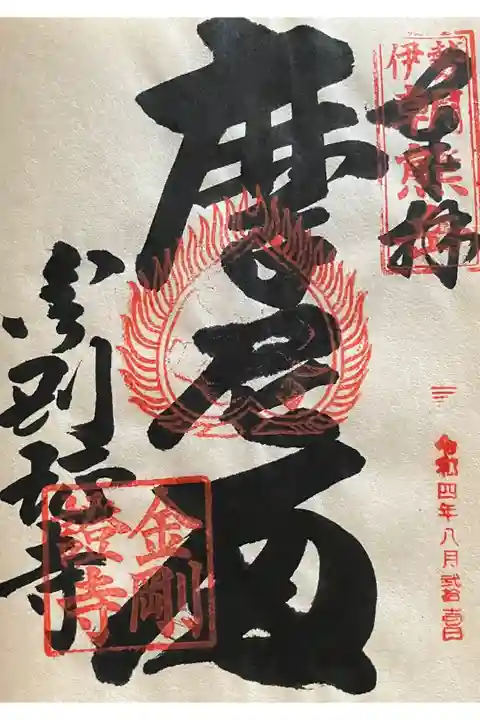 奉拝
伊勢
朝熊
令和四年八月弐拾壱日
摩尼殿
金剛證寺
金剛
證寺